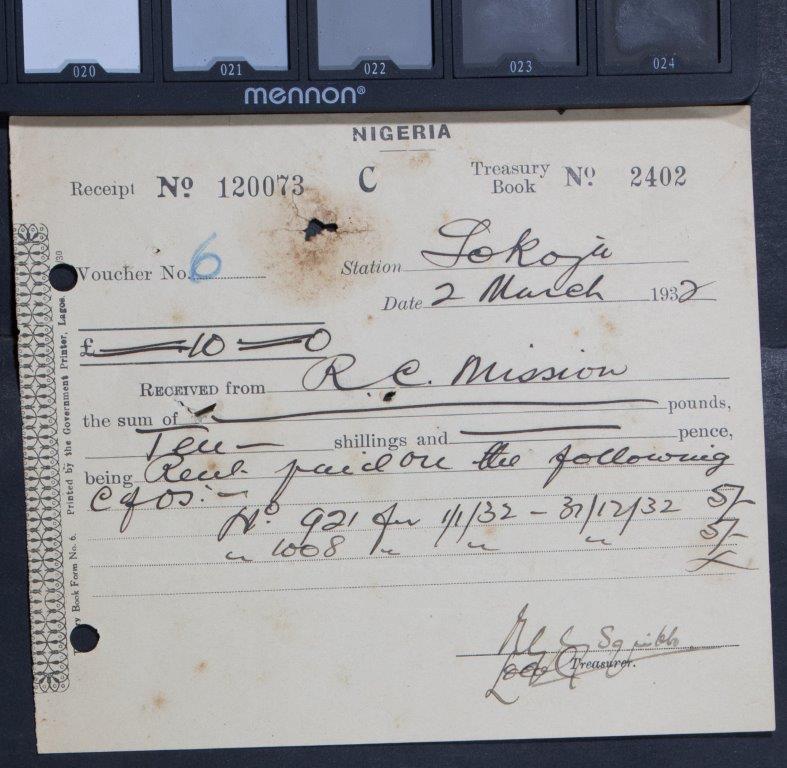 020 021 022 023 024
mennon®
NIGERIA
Receipt No 120073 C Treasury Book No 2402
Voucher No. 6 Station Lokoja
Date 2 March 1932
£ — 10 — 0
RECEIVED from R. C. Mission
the sum of — pounds,
Ten — shillings and — pence,
being Rent paid on the following
C of Os:-
No. 921 for 1/1/32 - 31/12/32 5/-
" 1008 " " " 5/-
Squibbs
Local Treasurer.
Printed by the Government Printer, Lagos.
ry Book Form No. 6.